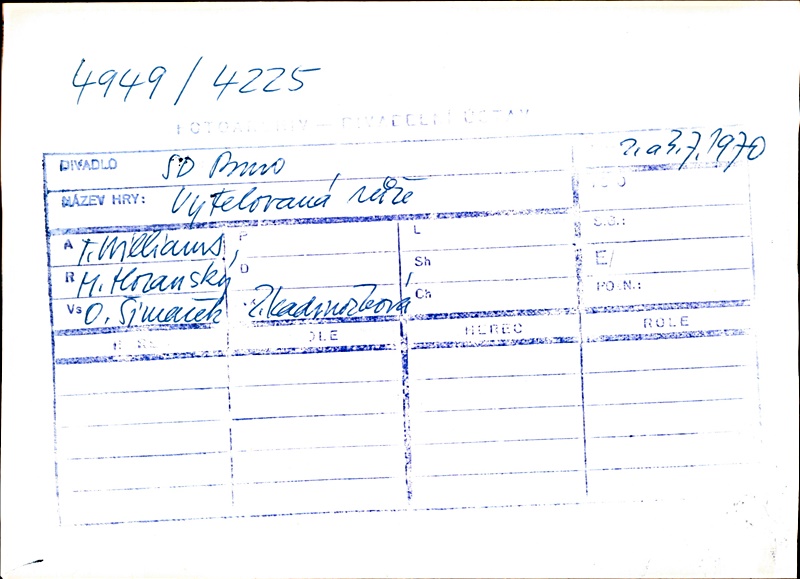 4949 / 4225
FOTOARCHIV – DIVADELNÍ ÚSTAV
DIVADLO SD Brno 2. a 3.7.1970
NÁZEV HRY: Vytetovaná růže
S.S.:
A T. Williams, P L E/
R M. Horanský D Sh PO.N.:
Vs O. Šimáček, Z. Kadrnožková Ch
ROLE HEREC ROLE